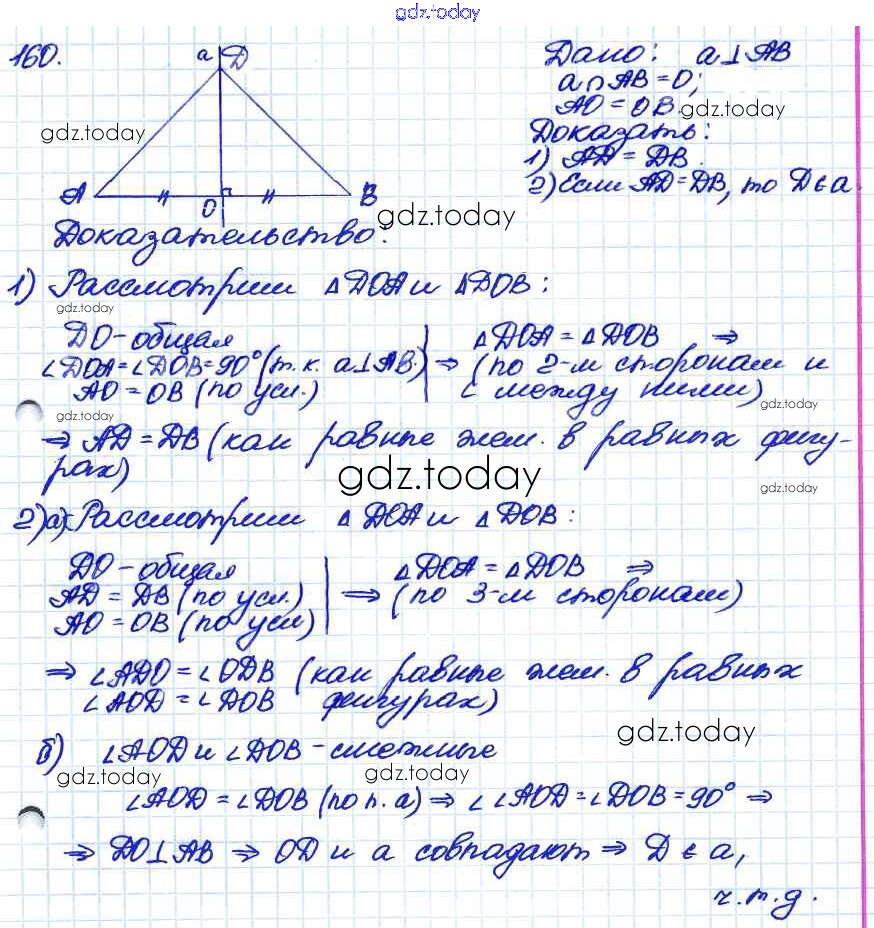 gdz.today
160.
a D
A O B
Дано: a⊥AB
a∩AB=O;
AO=OB.
gdz.today
Доказать:
1) AD=DB.
2) Если AD=DB, то D∈a
gdz.today
gdz.today
Доказательство:
1) Рассмотрим △DOA и △DOB:
gdz.today
DO-общая
∠DOA=∠DOB=90°(т.к. a⊥AB.)
AO=OB (по усл.)
⇒ △DOA=△DOB ⇒
(по 2-м сторонам и
∠ между ними)
gdz.today
gdz.today
⇒ AD=DB (как равные элем. в равных фигу-
рах)
gdz.today
gdz.today
2)а) Рассмотрим △DOA и △DOB:
DO-общая
AD=DB (по усл.)
AO=OB (по усл)
⇒ △DOA=△DOB ⇒
(по 3-м сторонам)
⇒ ∠ADO=∠ODB (как равные элем. в равных
∠AOD=∠DOB фигурах)
gdz.today
б) ∠AOD и ∠DOB-смежные
gdz.today
gdz.today
∠AOD=∠DOB (по п. а) ⇒ ∠∠AOD=∠DOB=90° ⇒
⇒ DO⊥AB ⇒ OD и a совпадают ⇒ D∈a,
ч.т.д.